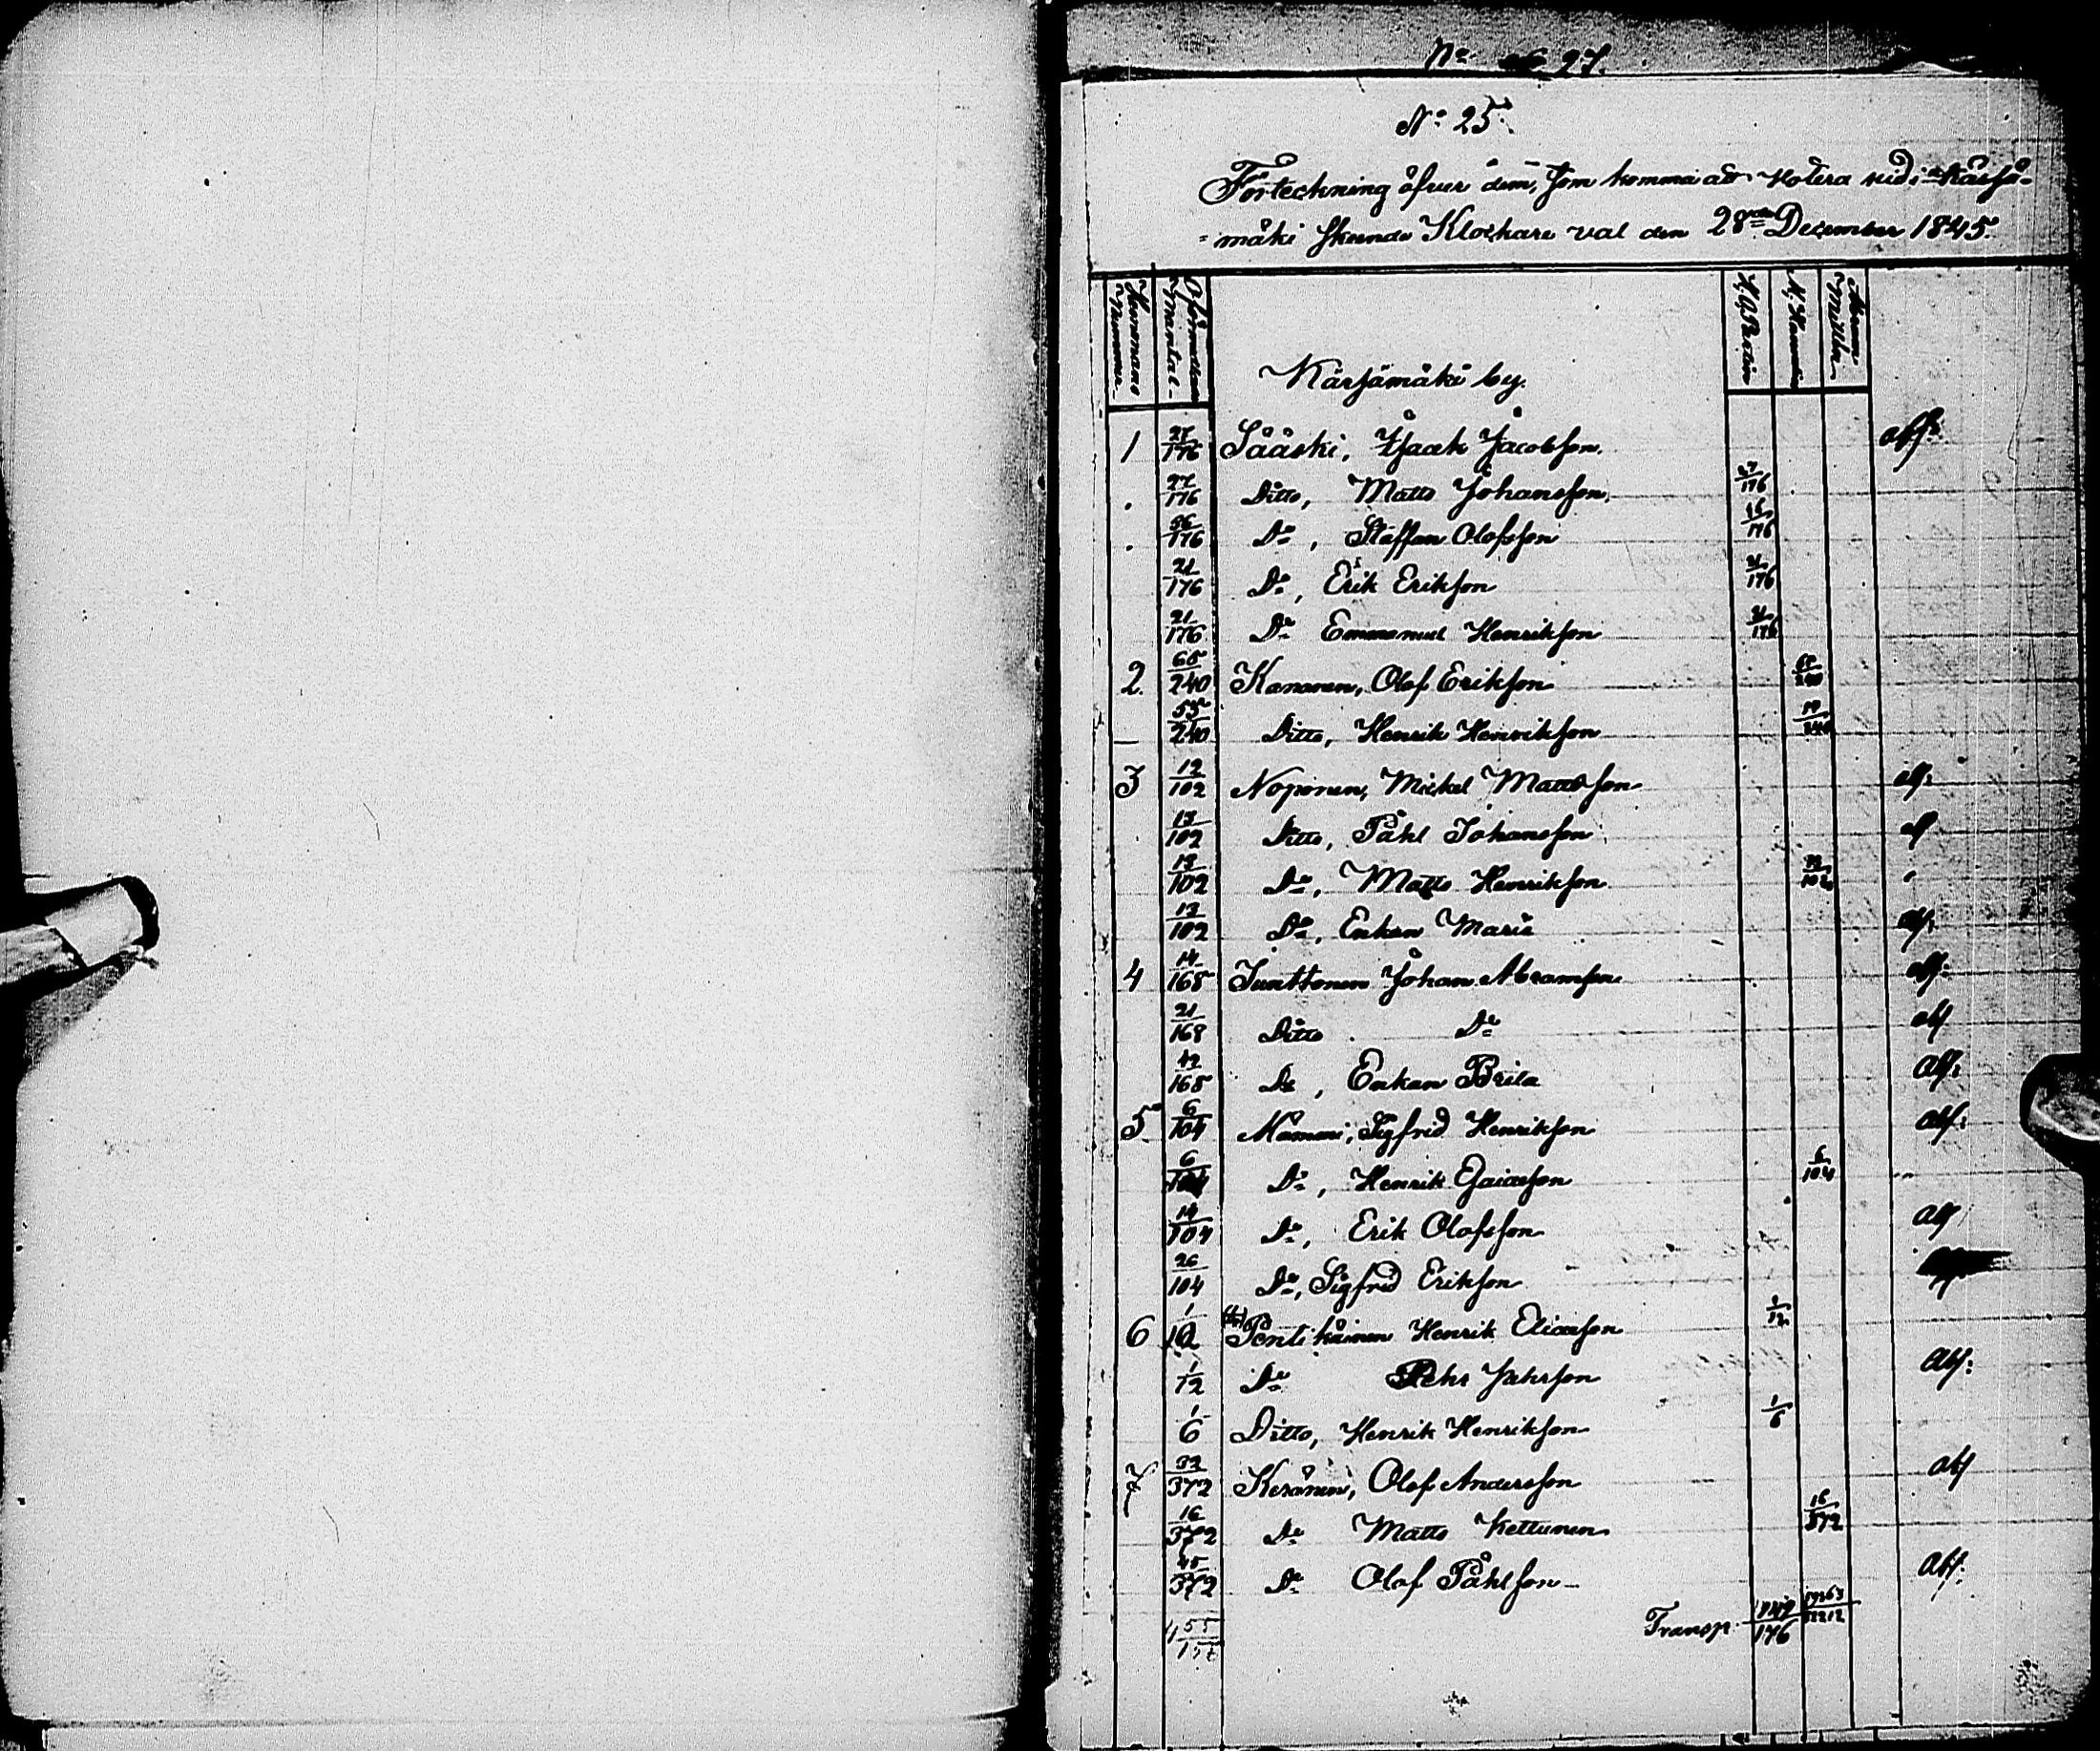 No 27.
No 25.
Förteckning öfver dem, som komma att Votera vid i Kärsä-
mäki skeende Klockare val den 28de December 1845.
Hemmans Nummer
Oförmedladt Mantal
Kärsämäki by.
1 27/176 Sääski, Isaak Jacobsson. abs:
27/176 Ditto, Matts Johansson. 27/176
56/176 Do, Staffan Olofsson 56/176
21/176 Do, Erik Eriksson 21/176
21/176 Do Emmanuel Henriksson 21/176
2. 65/240 Kananen, Olof Eriksson 65/240
55/240 Ditto, Henrik Henriksson /240
3 12/102 Noponen, Mickel Mattsson abs:
13/102 Ditto, Påhl Johansson abs
13/102 Do, Matts Henriksson 13/102
13/102 Do, Enkan Maria abs:
4 14/168 Junttonen Johan Abramsson abs:
21/168 Ditto Do abs
42/168 Do, Enkan Brita abs:
5 6/104 Mammi, Sigfrid Henriksson abs:
6/104 Do, Henrik Esaiasson 6/104
14/104 Do, Erik Olofsson abs
26/104 Do, Sigfrid Eriksson
6 1/12 Pentikäinen Henrik Eliasson 1/12
1/12 Do Pehr Pehrsson abs:
1/6 Ditto, Henrik Henriksson 1/6
7 32/372 Keränen, Olof Andersson abs
16/372 Do Matts Kettunen 16/372
45/372 Do Olof Påhlsson abs:
Transp.